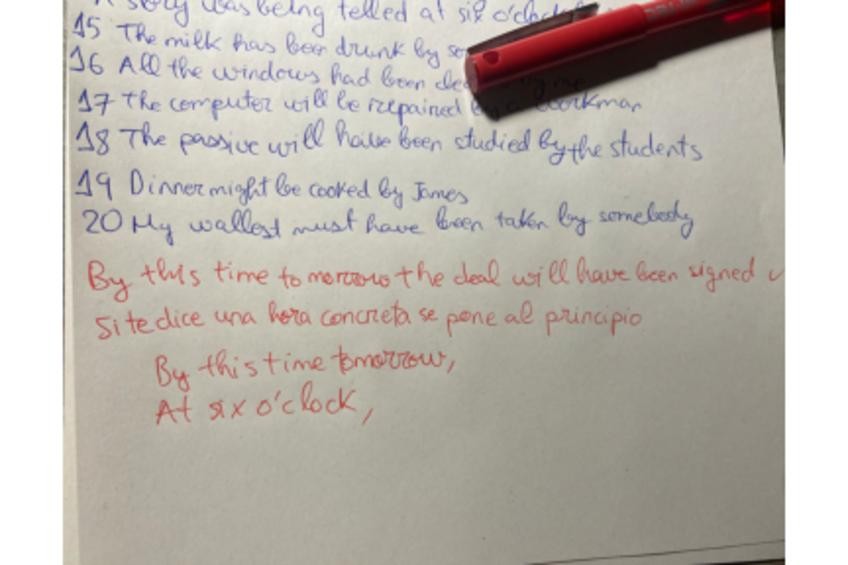 story was being telled at six o'clock
15 The milk has been drunk by
16 All the windows had been by me
17 The computer will be repaired by a workman
18 The passive will have been studied by the students
19 Dinner might be cooked by James
20 My wallest must have been taken by somebody
By this time tomorrow the deal will have been signed
Si te dice una hora concreta se pone al principio
By this time tomorrow,
At six o'clock,